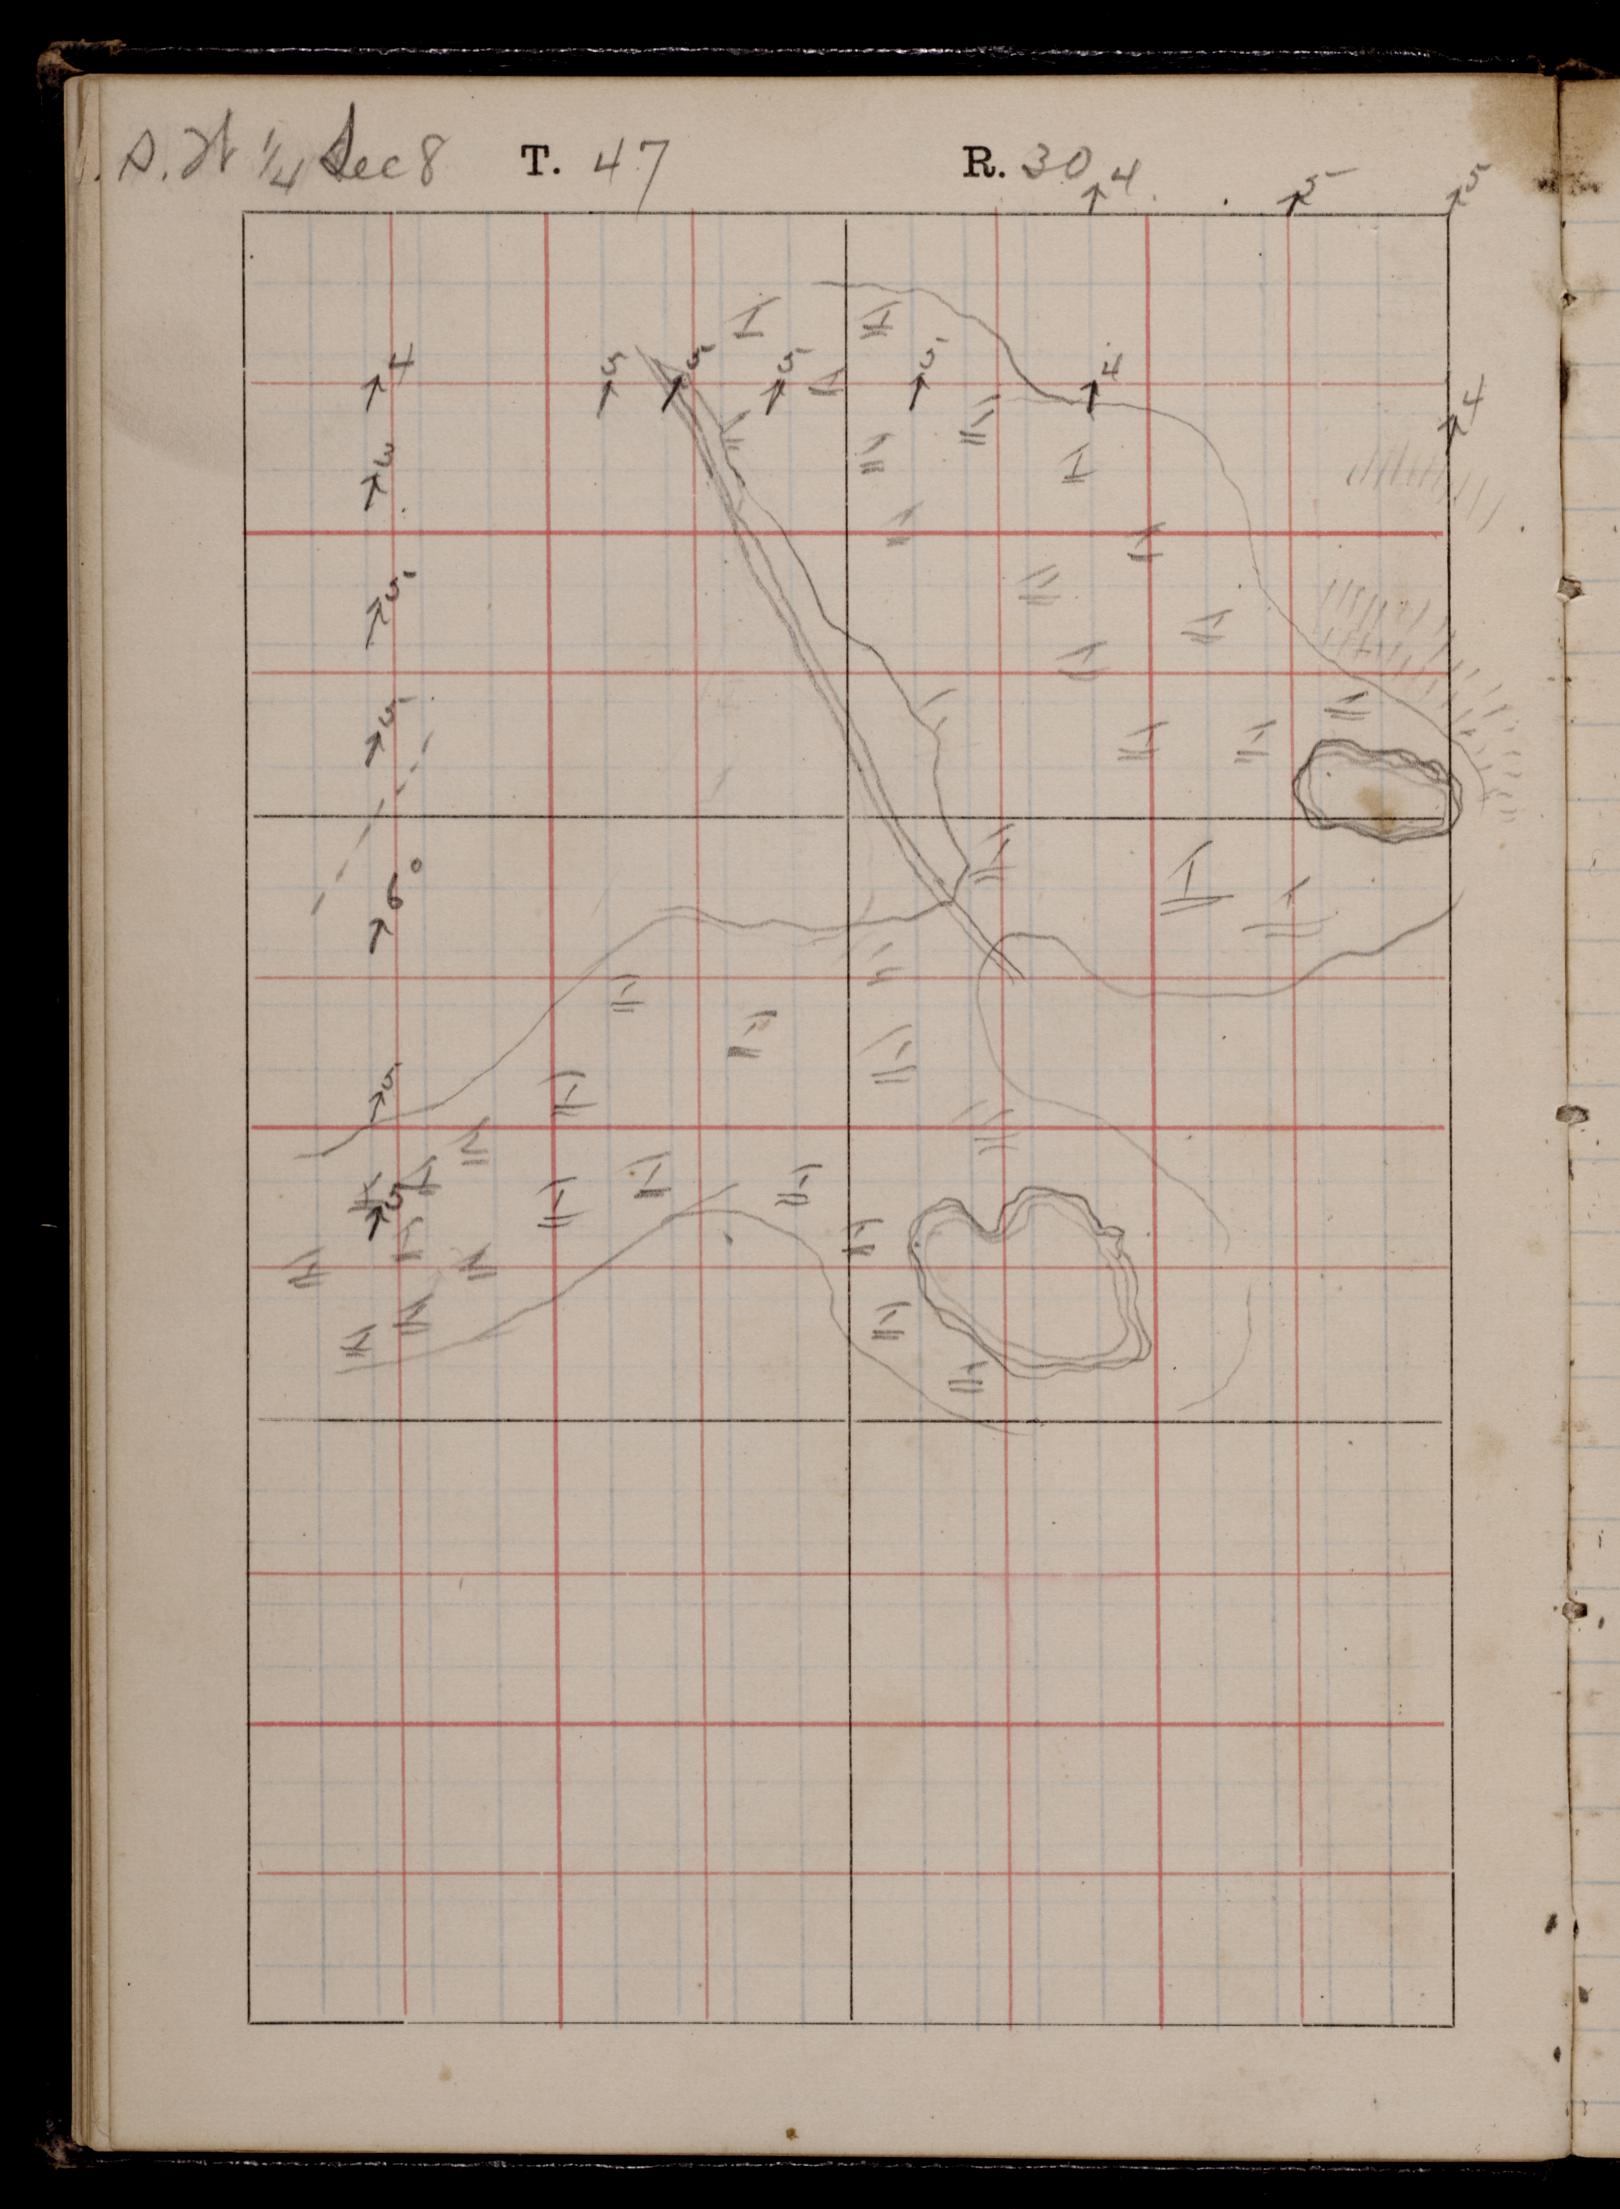 S. W ¼ Sec 8 T. 47 R. 30
4 5 5
4 5 5 5 5 4 4
3
5
5
6°
5
5